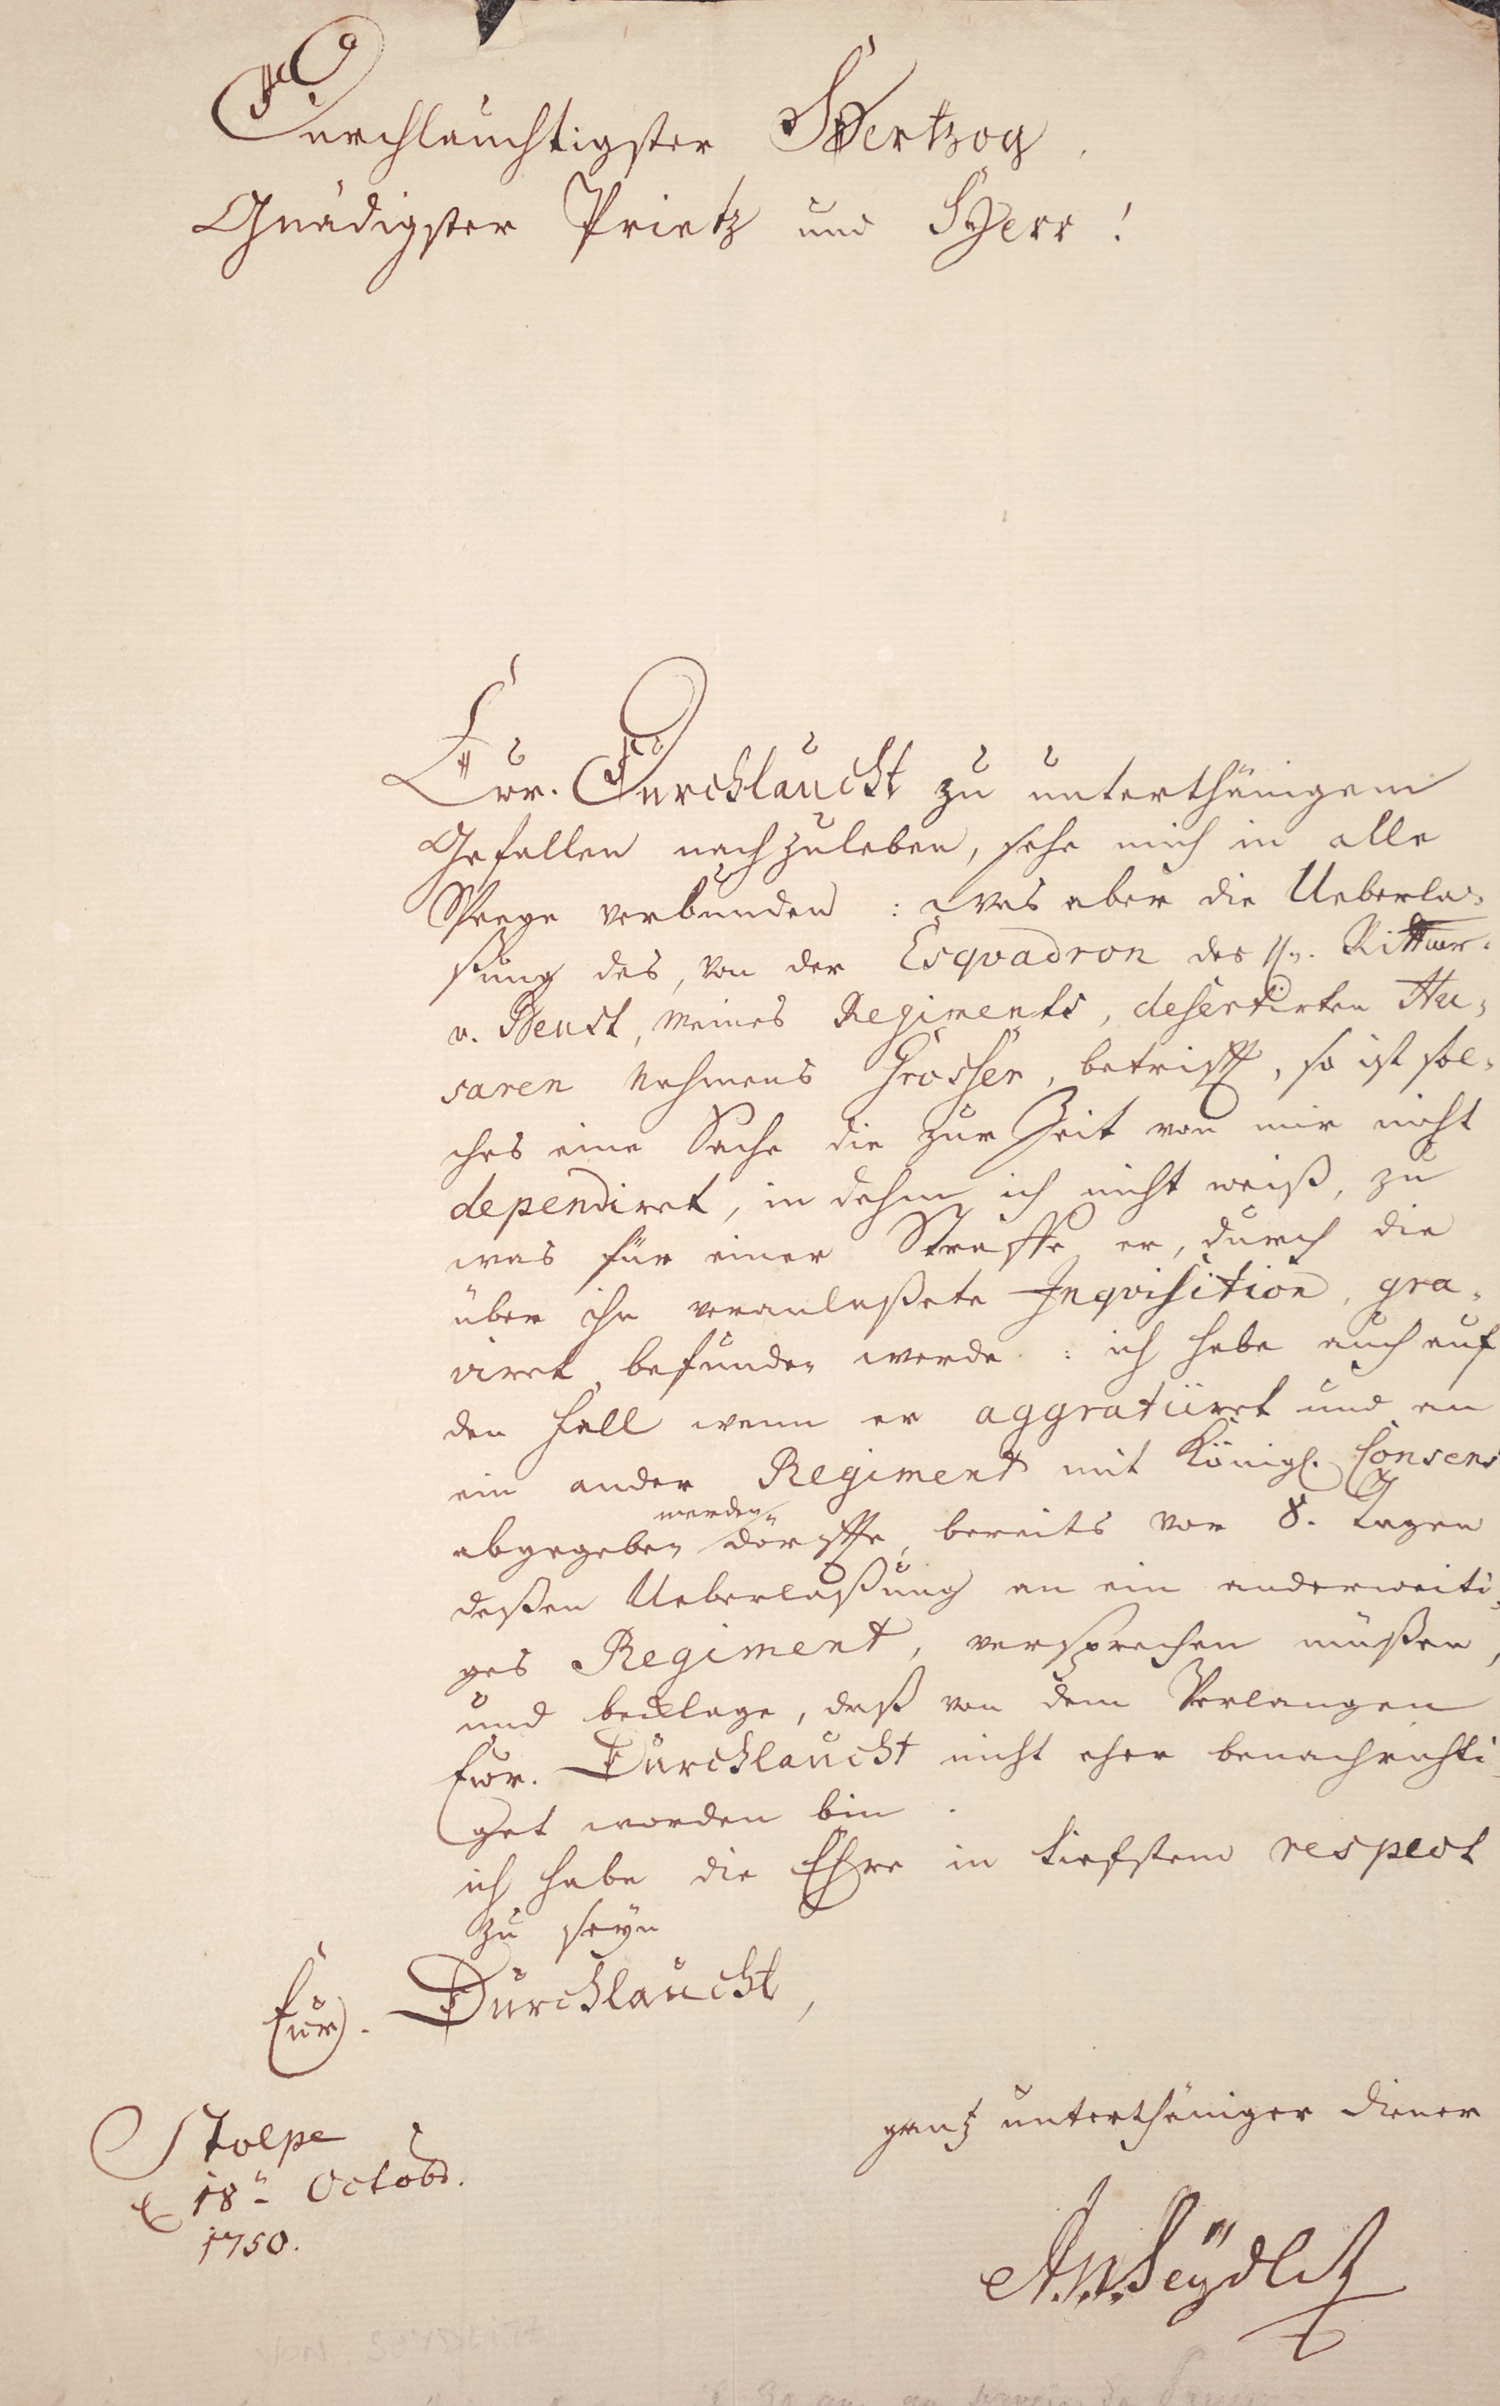 Durchlauchtigster Hertzog,
Gnädigster Printz und Herr!
Eur. Durchlaucht zu unterthänigem
Gefallen nachzuleben, sehe mich in alle
Weege verbunden: was aber die Ueberla-
ßung des, von der Esqvadron des H. Rittmr.
v. Beust, meines Regiments, desertirten Hu-
saren Nahmens Grosser, betrifft, so ist sol-
ches eine Sache die zur Zeit von mir nicht
dependiret, in dehm ich nicht weiß, zu
was für einer Straffe er, durch die
über ihn veranlaßete Inqvisition, gra-
viret befunden werde: ich habe auch auf
den Fall wenn er aggratiiret und an
ein ander Regiment mit Königl. Consens
abgegeben werden dörffte, bereits vor 8. Tagen
deßen Ueberlaßung an ein anderweiti-
ges Regiment, versprechen müßen,
und beklage, daß von dem Verlangen
Eur. Durchlaucht nicht eher benachrichti-
get worden bin.
ich habe die Ehre in tiefstem respect
zu seyn
Eur. Durchlaucht,
ganz unterthäniger Diener
Stolpe
d 18n Octobr.
1750.
A.v.Seydlitz
von Seydlitz